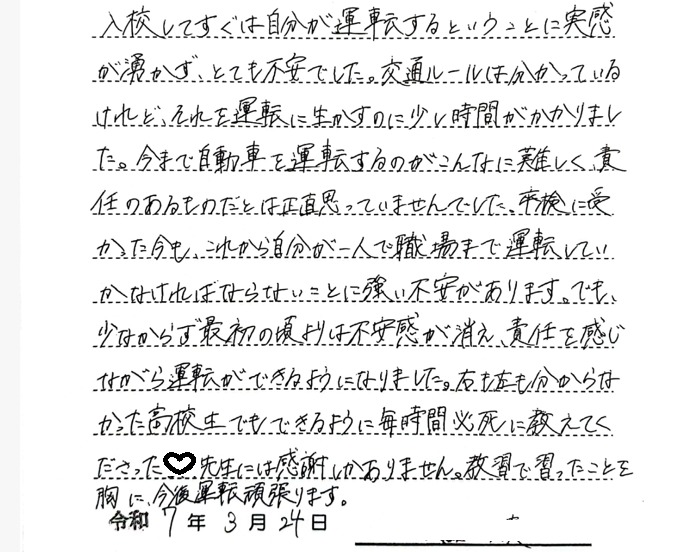 入校してすぐは自分が運転するということに実感
が湧かず、とても不安でした。交通ルールは分かっている
けれど、それを運転に生かすのに少し時間がかかりまし
た。今まで自動車を運転するのがこんなに難しく、責
任のあるものだとは正直思っていませんでした。卒検に受
かった今も、これから自分が一人で職場まで運転してい
かなければならないことに強い不安があります。でも、
少なからず最初の頃よりは不安感が消え、責任を感じ
ながら運転ができるようになりました。右も左も分からな
かった高校生でもできるように毎時間必死に教えてく
ださった♡先生には感謝しかありません。教習で習ったことを
胸に、今後運転頑張ります。
令和 7 年 3 月 24 日